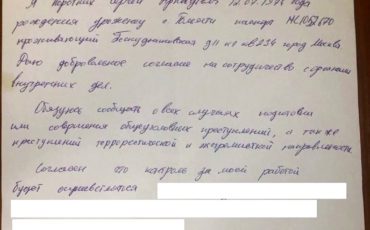 Я Коротких Сергей Аркадьевич 12.09.1974 года
рождения уроженец г. паспорт
проживающий кв 234 город Москва
Даю добровольное согласие на сотрудничество с органами
внутренних дел.
Обязуюсь сообщать о всех случаях подготовки
или совершения общеуголовных преступлений, а также
преступлений террористической и экстремистской направленности
Согласен что контроль за моей работой
будет осуществляться